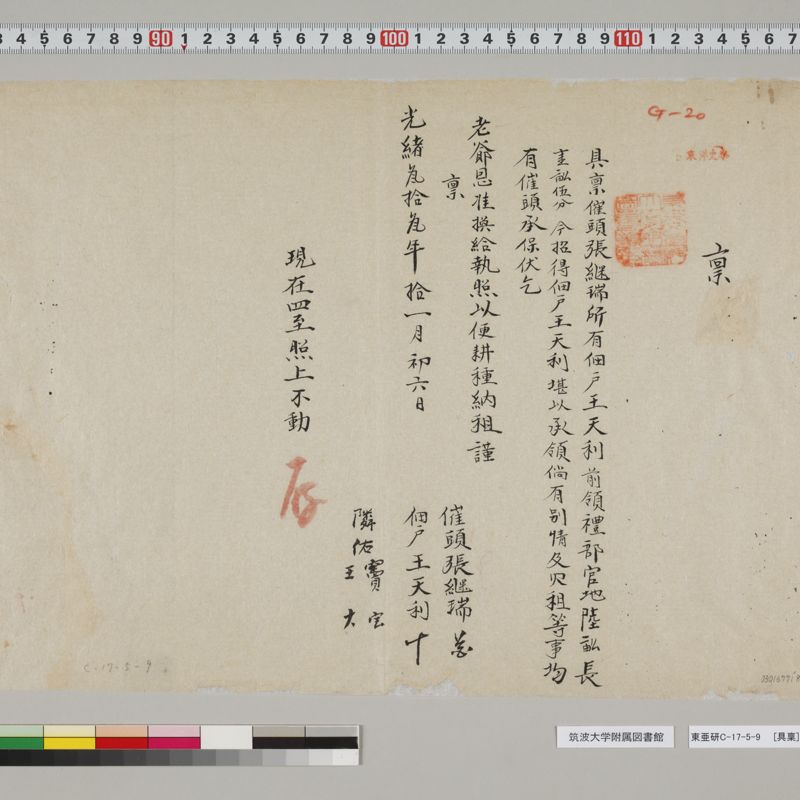 G-20
稟
具稟催頭張繼瑞所有佃戶王天利前領禮部官地陸畝長
畝伍分 今招得佃戶王天利堪以承領倘有別情及欠租等事均
有催頭承保伏乞
老爺恩准換給執照以便耕種納租謹
稟
光緒貳拾貳年拾一月初六日
催頭張繼瑞
佃戶王天利 十
隣佑 竇宝
王大
現在四至照上不動
存
C-17-5-9
3 4 5 6 7 8 9 90 1 2 3 4 5 6 7 8 9 100 1 2 3 4 5 6 7 8 9 110 1 2 3 4 5 6 7
筑波大学附属図書館
東亜研C-17-5-9 [具稟]